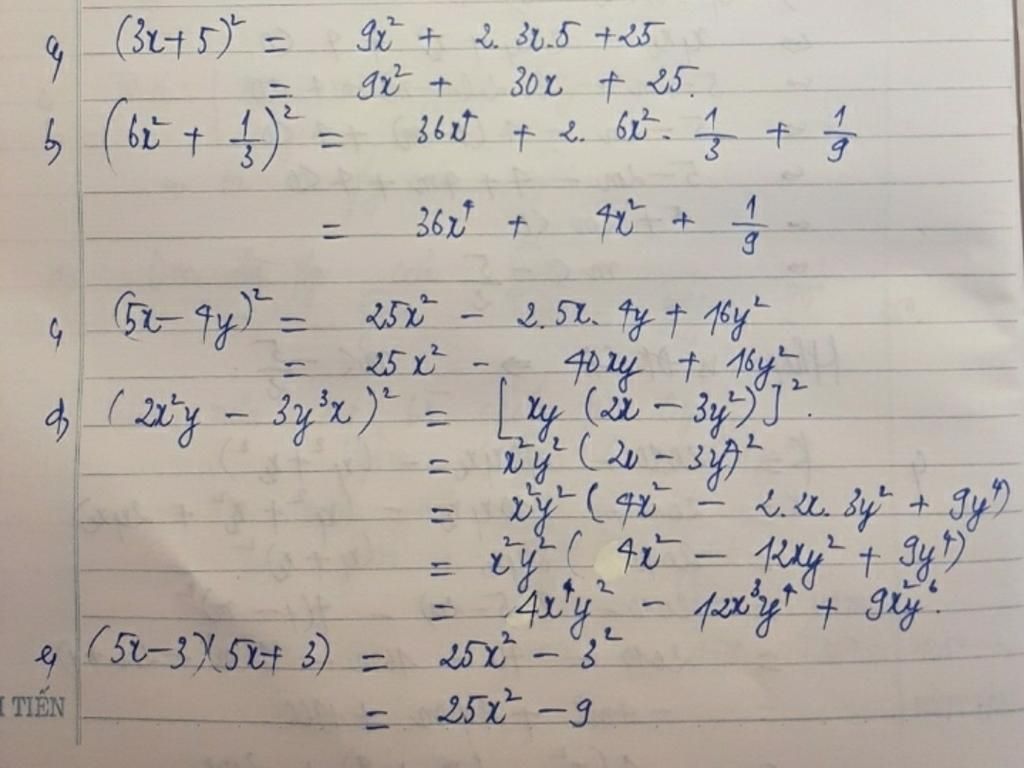 a, (3x+5)² = 9x² + 2.3x.5 + 25
= 9x² + 30x + 25.
b, (6x² + 1/3)² = 36x⁴ + 2. 6x². 1/3 + 1/9
= 36x⁴ + 4x² + 1/9
c, (5x - 4y)² = 25x² - 2.5x.4y + 16y²
= 25x² - 40xy + 16y²
d, (2x²y - 3y³x)² = [xy (2x - 3y²)]².
= x²y² (2x - 3y²)²
= x²y² (4x² - 2.2x.3y² + 9y⁴)
= x²y² (4x² - 12xy² + 9y⁴)
= 4x⁴y² - 12x³y⁴ + 9x²y⁶.
e, (5x-3)(5x+3) = 25x² - 3²
= 25x² - 9
TIẾN